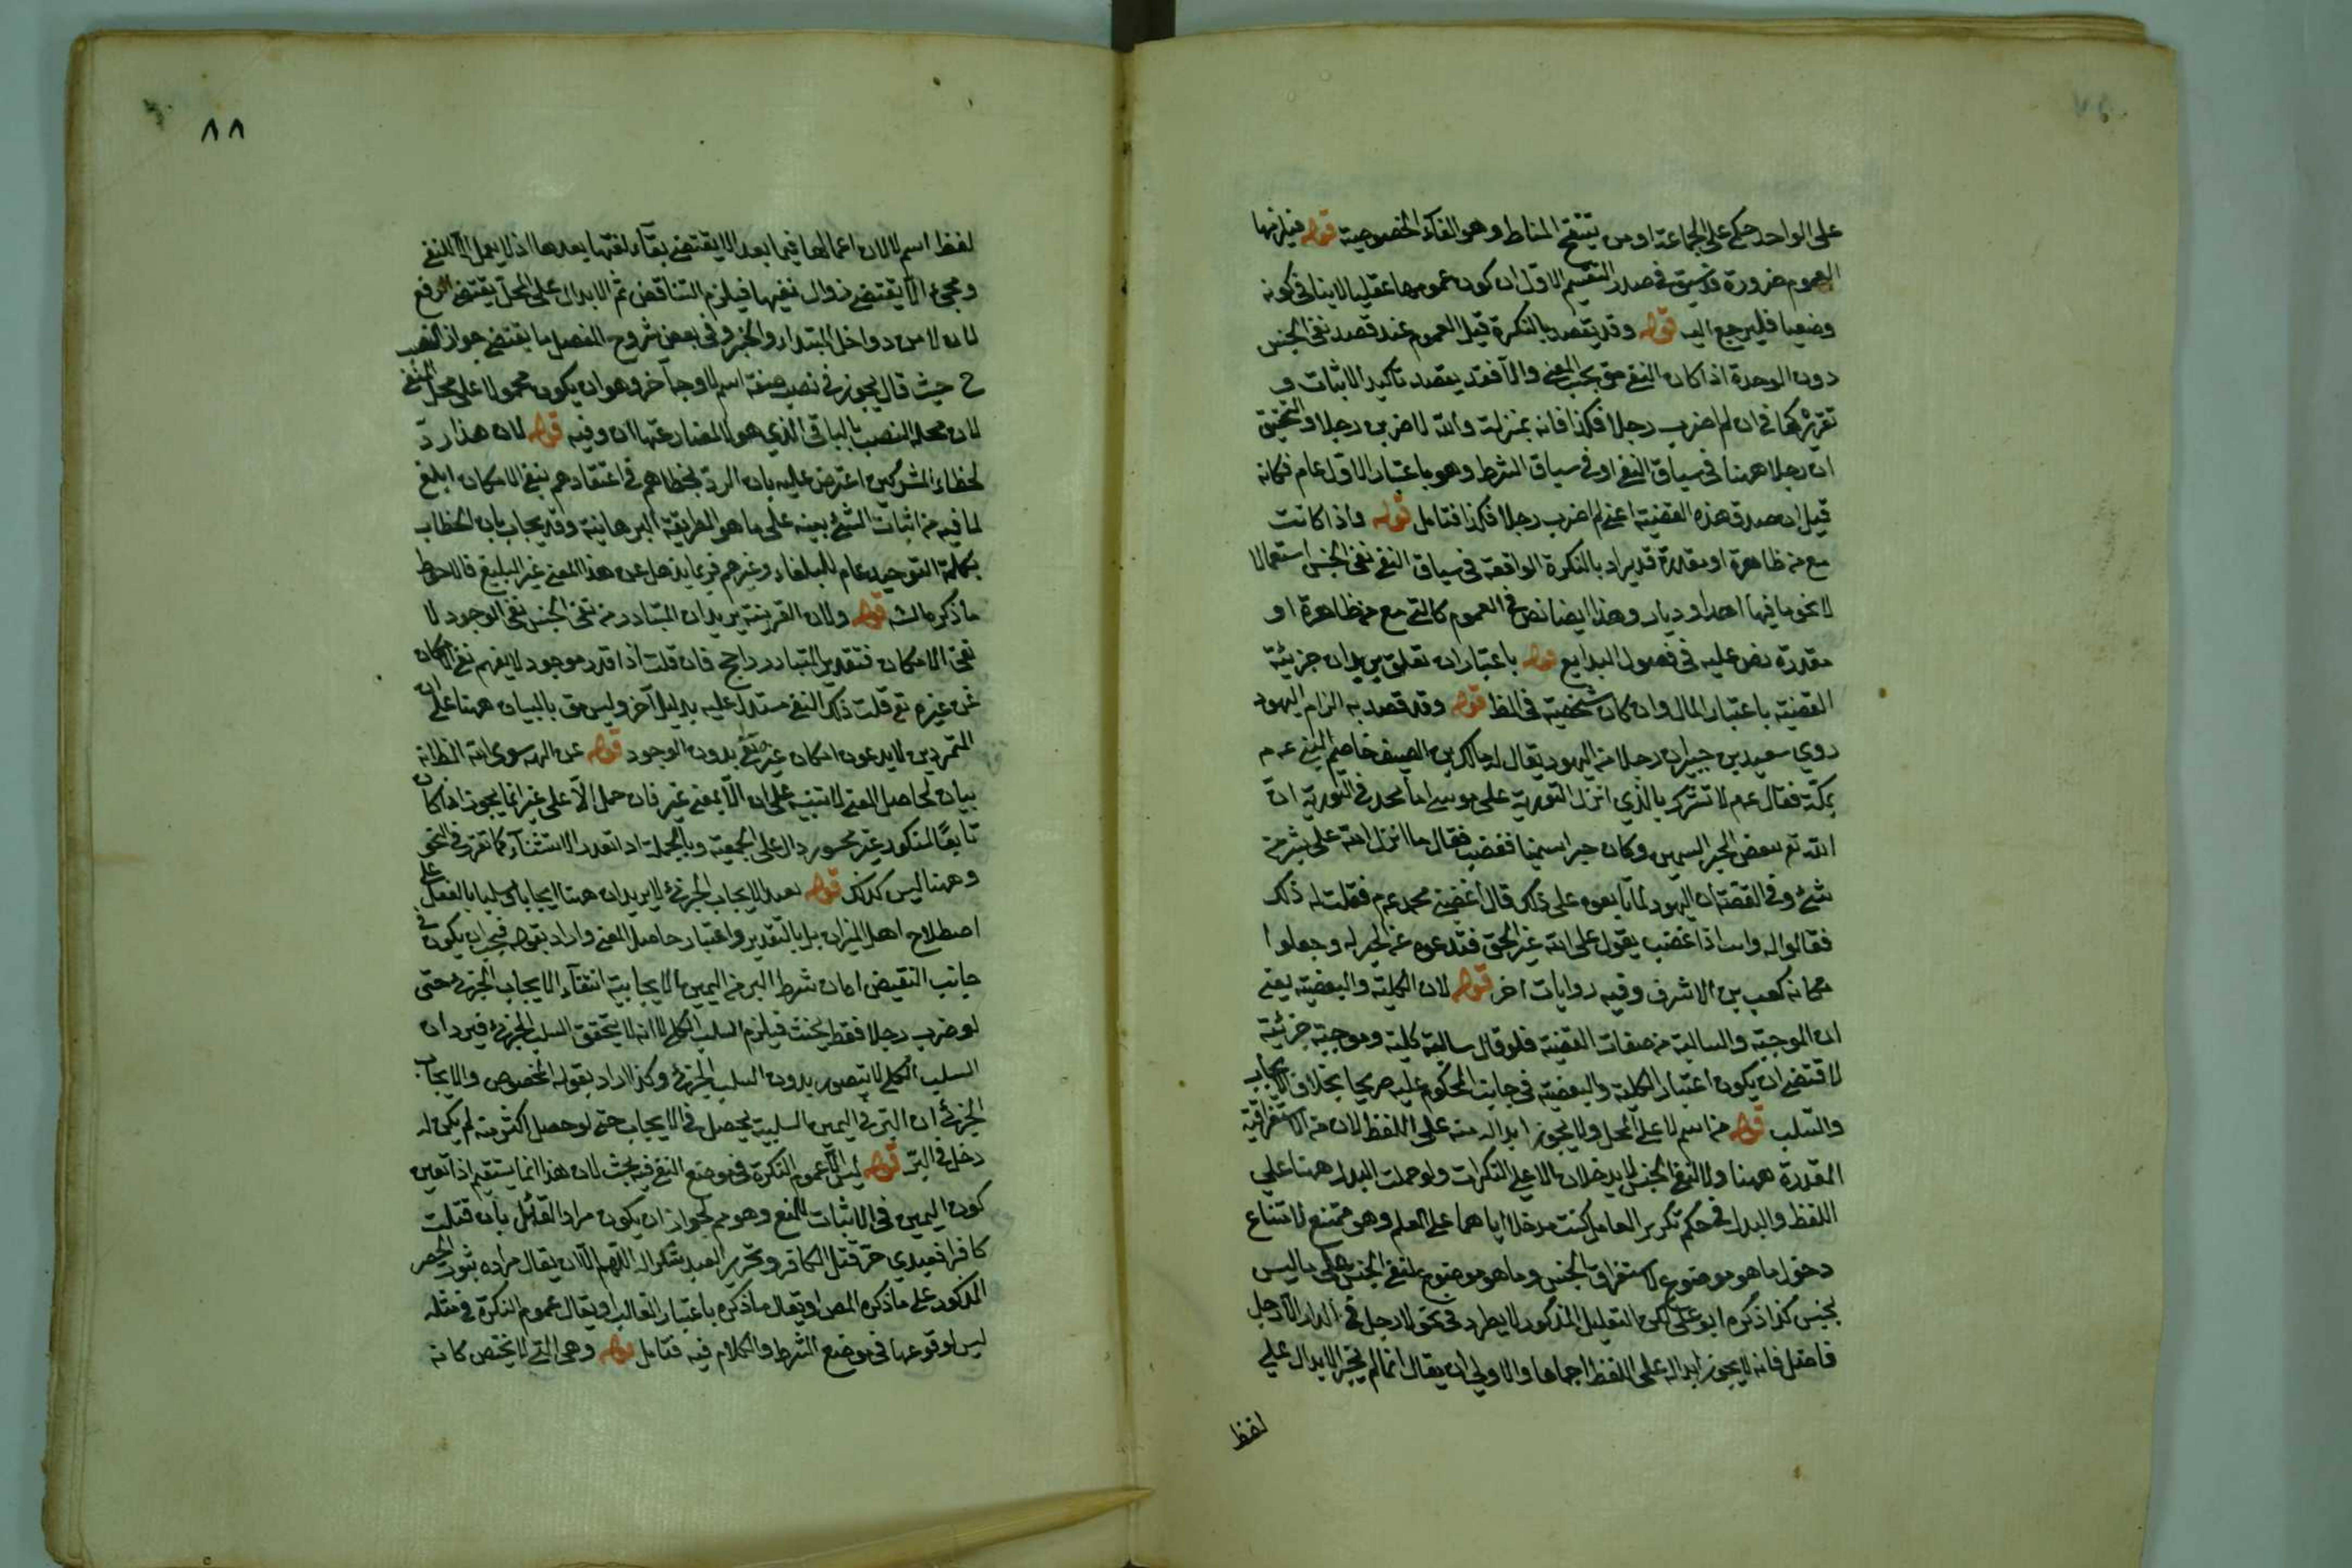 على الواحد حكم على الجماعة او من تنقيح المناط وهو الغاء الخصوصية قوله فيلزمها
العموم ضرورة قد سبق فى صدر التقسيم الاول ان كون عمومها عقليا لا ينافى كونه
وضعيا فليرجع اليه قوله وقد يقصد بالنكرة قيل العموم عند قصد نفى الجنس
دون الوحدة اذا كان النفى حق بحسب المعنى والا فقد يقصد تأكيد الاثبات و
تقريره كما فى ان لم اضرب رجلا فكذا فانه بمنزلة والله لاضربن رجلا والتحقيق
ان رجلا ههنا فى سياق النفى او فى سياق الشرط وهو باعتبار الاول عام فكانه
قيل ان صدق هذه القضية اعنى لم اضرب رجلا فكذا فتامل قوله واذا كانت
مع من ظاهرة او مقدرة قد يراد بالنكرة الواقعة فى سياق النفى نفى الجنس استعمالا
لا نحو ما فيها احد او ديار وهذا ايضا نص فى العموم كالتى مع من ظاهرة او
مقدرة نص عليه فى فصول البدايع قوله باعتبار ان تعلق يريد ان جزئية
القضية باعتبار المال وان كان شخصية فى الظ قوله وقد قصد به الزام اليهود
روي سعيد بن جبير ان رجلا من اليهود يقال له مالك بن الصيف خاصم النبى عم م
بمكة فقال عم لا تشرك بالذي انزل التورية على موسى اما تجد فى التورية ان
الله تع يبغض الحبر السمين وكان حبرا سمينا فغضب فقال ما انزل الله على بشر من
شئ وفى القصة ان اليهود لما تابعوه على ذلك قال اغضبنى محمد عم فقلت له ذلك
فقالوا له وانت اذا غضبت تقول على الله غير الحق فتدعوه عن الحبر له وجعلوا
مكانه كعب بن الاشرف وفيه روايات اخر قوله لان الكلية والبعضية يعنى
ان الموجبة والسالبة من صفات القضية فلو قال سالبة كلية وموجبة جزئية
لاقتضى ان يكون اعتبار الكلية والبعضية فى جانب المحكوم عليه صريحا بخلاف الايجاب
والسلب قوله من اسم لا على المحل ولا يجوز ابداله منه على اللفظ لان من الاستغراقية
المقدرة ههنا ولا لنفى الجنس لا يدخلان الا على النكرات ولو حملت البدل ههنا على
اللفظ والبدل فى حكم تكرير العامل كنت مدخلا اياهما على العلم وهو ممتنع لامتناع
دخول ما هو موضوع لاستغراق الجنس وما هو موضوع لنفى الجنس على ما ليس
بجنس كذا ذكره ابو على لكن التعليل المذكور لا يطرد فى نحو لا رجل فى الدار الا رجل
فاضل فانه لا يجوز ابداله على اللفظ اجماعا والاولى ان يقال انما لم يجز الابدال على
لفظ
٨٨
لفظ اسم لا لان اعمالها فيما بعد الا يقتضى بقاء نفيها بعدها اذ لا يعمل الا للنفى
ومجئ الا يقتضى زوال نفيها فيلزم التناقض ثم الابدال على المحل يقتضى الرفع
لان لا من دواخل المبتدا والخبر وفى بعض شروح المفصل ما يقتضى جواز النصب
ح حيث قال يجوز فى نصب صفة اسم لا وجه آخر وهو ان يكون محمولا على محل المنفى
لان محله النصب بالباقى الذي هو لا لمضارعتها ان وفيه قوله لان هذا رد
لخطاء المشركين اعترض عليه بان الرد بخطاهم فى اعتقادهم بنفى الامكان ابلغ
لما فيه من اثبات الشئ ببينة على ما هو الطريقة البرهانية وقد يجاب بان الخطاب
بكلمة التوحيد عام للبلغاء وغيرهم فربما يذهل عن هذا المعنى غير البليغ فالاحوط
ما ذكره الشـ قوله ولان القرينة يريد ان المتبادر من نفى الجنس نفى الوجود لا
نفى الامكان فتقدير المتبادر راجح فان قلت اذا قدر موجود لا يفهم نفى الامكان
عن غيره تع قلت ذلك النفى مستدل عليه بدليل آخر وليس حق بالبيان ههنا على ان
المتمردين لا يدعون امكان غيره تع بدون الوجود قوله عن اله سوى الله الظ انه
بيان لحاصل المعنى لا تنبيه على ان الا بمعنى غير فان حمل الا على غير انما يجوز اذا كان
تابعًا لمنكور غير محسور دال على الجمعية وبالجملة اذا تعذر الاستثناء كما تقرر فى النحو
وههنا ليس كذلك قوله بعد الايجاب الجزئ لا يريد ان ههنا ايجابا وسلبا بالفعل على
اصطلاح اهل الميزان بل بالتقدير واعتبار حاصل المعنى واراد بقوله فيجب ان يكون فى
جانب النقيض اه ان شرط البر فى اليمين الايجابية انتفاء الايجاب الجزئ حتى
لو ضرب رجلا فقط يحنث فيلزم السلب الكلى لا انه لا يتحقق السلب الجزئ فيرد ان
السلب الكلى لا يتصور بدون السلب الجزئ وكذا اراد بقوله المخصوص والايجاب
الجزئ ان البر فى اليمين السلبية يحصل فى الايجاب حتى لو حصل اكثر منه لم يكن له
دخل فى البر قوله ليس الا عموم النكرة فى موضع النفى فيه بحث لان هذا انما يستقيم اذا تعين
كون اليمين فى الاثبات للمنع وهو م لجواز ان يكون مراد القائل بان قتلت
كافرا فعبدي حر قتل الكافر وتحرير العبد شكرا له اللهم الا ان يقال مراده ثبوت الحصر
المذكور على ما ذكره المص او يقال ما ذكره باعتبار الغالب او يقال عموم النكرة فى مثله
ليس لوقوعها فى موضع الشرط والكلام فيه فتامل قوله وهى التى لا يختص كانه